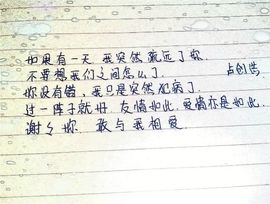 如果有一天 我突然疏远了你.
不要想我们之间怎么了.
你没有错,我只是突然犯病了.
过一阵子就好 友情如此.爱情亦是如此.
谢々你 敢与我相爱.